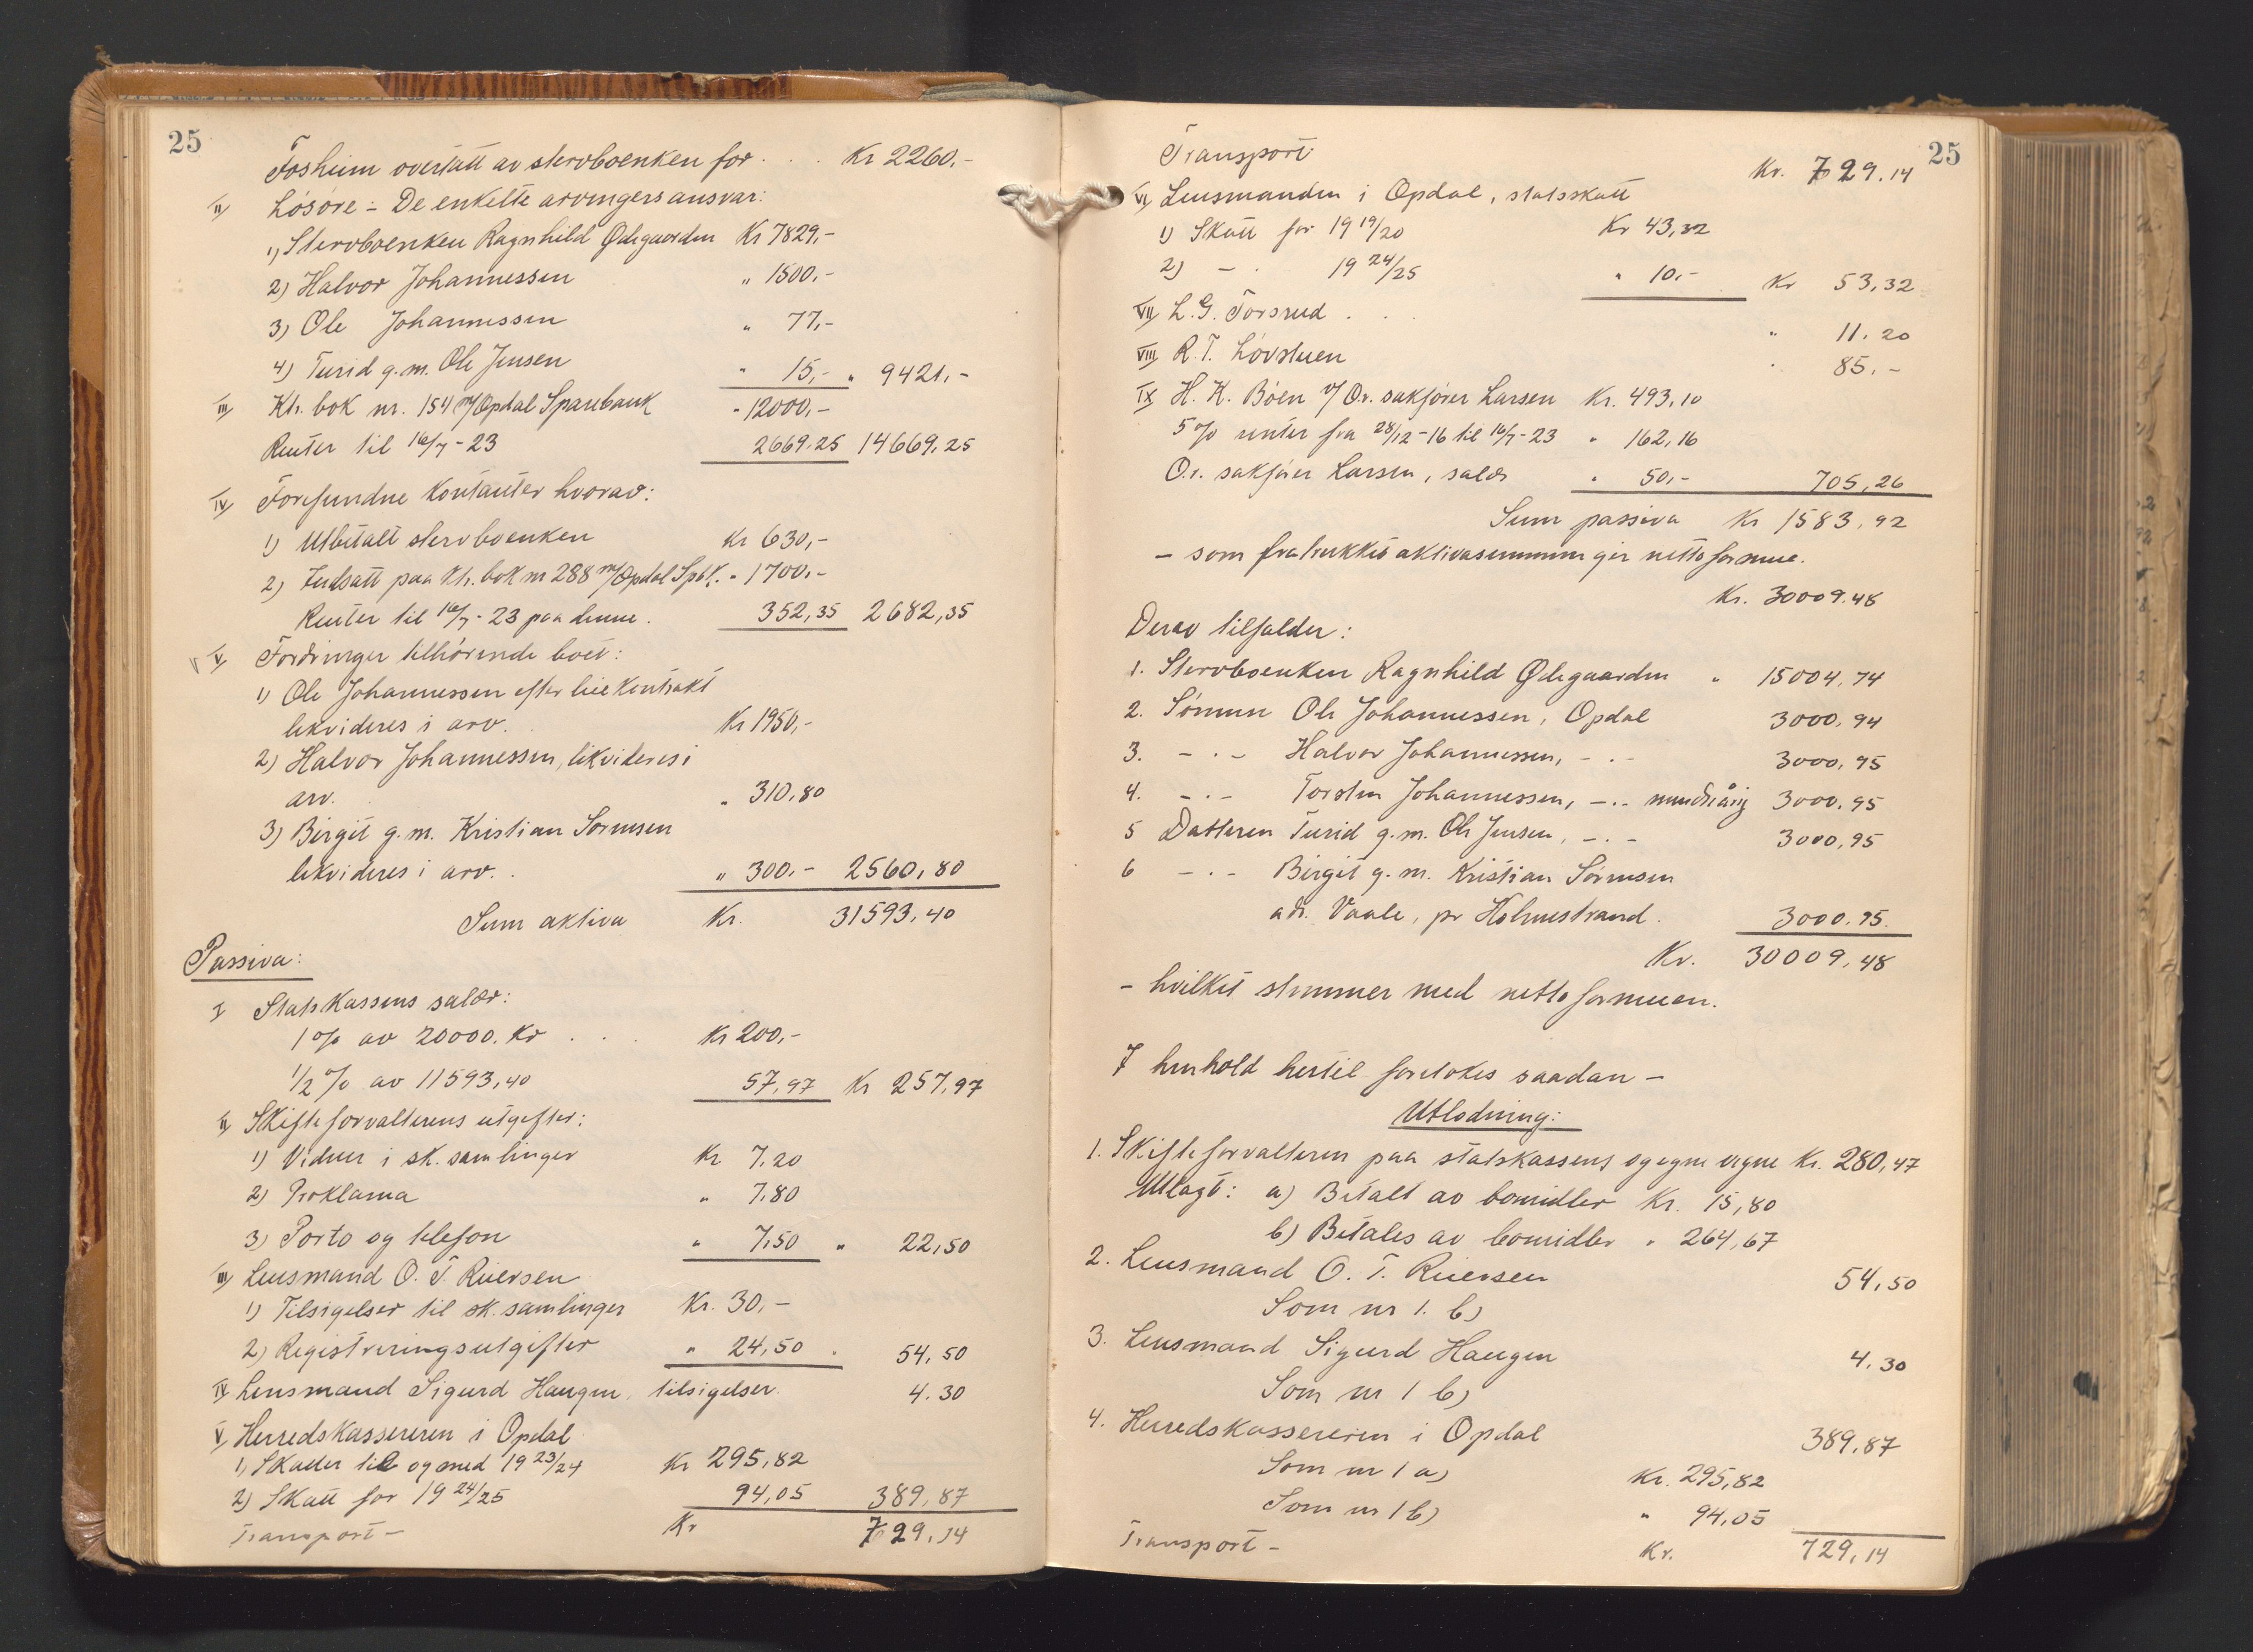 25
Fosheim overtatt av stervboenken for . . . Kr 2260,-
II, Løsøre :- De enkelte arvingers ansvar:
1, Stervboenken Ragnhild Ødegaarden Kr 7829,-
2) Halvor Johannessen " 1500,-
3) Ole Johannessen " 77,-
4) Turid g. m. Ole Jensen " 15,- " 9421,-
III, Ktr. bok nr. 154 m/Opdal Sparebank " 12000,-
Renter til 16/7-23 2669.25 14669,25
IV, Forefundne kontanter hvorav:
1) Utbetalt stervboenken Kr 630,-
2) Indsatt paa Ktr. bok nr 288 m/Opdal Spbk. " 1700,-
Renter til 16/7-23 paa denne. 352,35 2682,35
V, Fordringer tilhørende boet:
1) Ole Johannessen efter leiekontrakt
likvideres i arv. Kr 1950,-
2) Halvor Johannessen, likvideres i
arv. " 310,80
3) Birgit g. m. Kristian Sørensen
likvideres i arv. . " 300,- 2560,80
Sum aktiva Kr. 31593,40
Passiva:
I Statskassens salær:
1 % av 20000. Kr . . . Kr 200,-
1/2 % av 11593,40 57,97 Kr 257,97
II, Skifteforvalterens utgifter:
1) Vidner i sk. samlinger Kr 7,20
2) Proklama " 7,80
3) Porto og telefon " 7,50 " 22,50
III, Lensmand O. T. Ruersen
1) Tilsigelser til sk. samlinger Kr. 30,-
2) Registreringsutgifter " 24,50 " 54,50
IV Lensmand Sigurd Haugen, tilsigelser. 4.30
V, Herredskassereren i Opdal
1, Skatter til og med 19 23/24 Kr 295,82
2) Skatt for 19 24/25 94,05 389,87
Transport - Kr 729,14
25
Transport: Kr. 729.14
VI, Lensmanden i Opdal, statsskatt
1) Skatt for 19 19/20 Kr 43,32
2) - . 19 24/25 " 10,- Kr 53,32
VII, L. G. Torsrud . . . " 11.20
VIII, R. T. Løvstuen " 85.-
IX, H. K. Bøen v/ O.r. sakfører Larsen Kr. 493,10
5 % renter fra 28/12-16 til 16/7-23 " 162,16
O.r. sakfører Larsen, salær " 50,- 705,26
Sum passiva Kr 1583,92
- som fratrukket aktivasummen gir nettoformue.
Kr. 30009.48
Derav tilfalder:
1. Stervboenken Ragnhild Ødegaarden " 15004,74
2. Sønnen Ole Johannessen, Opdal 3000,94
3. - . - Halvor Johannessen, - . - 3000,95
4. - . - Torsten Johannessen, - . - mindreårig 3000,95
5 Datteren Turid g. m. Ole Jensen, - . - 3000,95
6 - . - Birgit g. m. Kristian Sørensen
adr. Vaale, pr Holmestrand. 3000.95
Kr. 30009,48
- hvilket stemmer med nettoformuen.
I henhold hertil foretokes saadan -
Utlodning:
1. Skifteforvalteren paa statskassens og egne vegne Kr. 280,47
Utlagt: a) Betalt av bomidler Kr. 15,80
b) Betales av bomidler " 264,67
2. Lensmand O. T. Ruersen 54,50
Som nr 1. b)
3. Lensmand Sigurd Haugen 4.30
Som nr 1 b)
4. Herredskassereren i Opdal 389,87
Som nr 1 a) Kr. 295,82
Som nr 1 b) " 94,05
Transport - Kr. 729,14